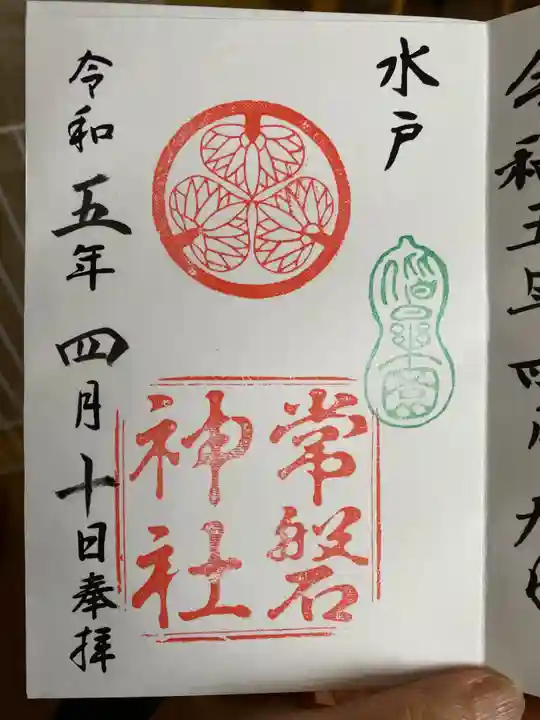 令和五年四月九日
水戸
偕楽園
常磐
神社
令和五年四月十日奉拝